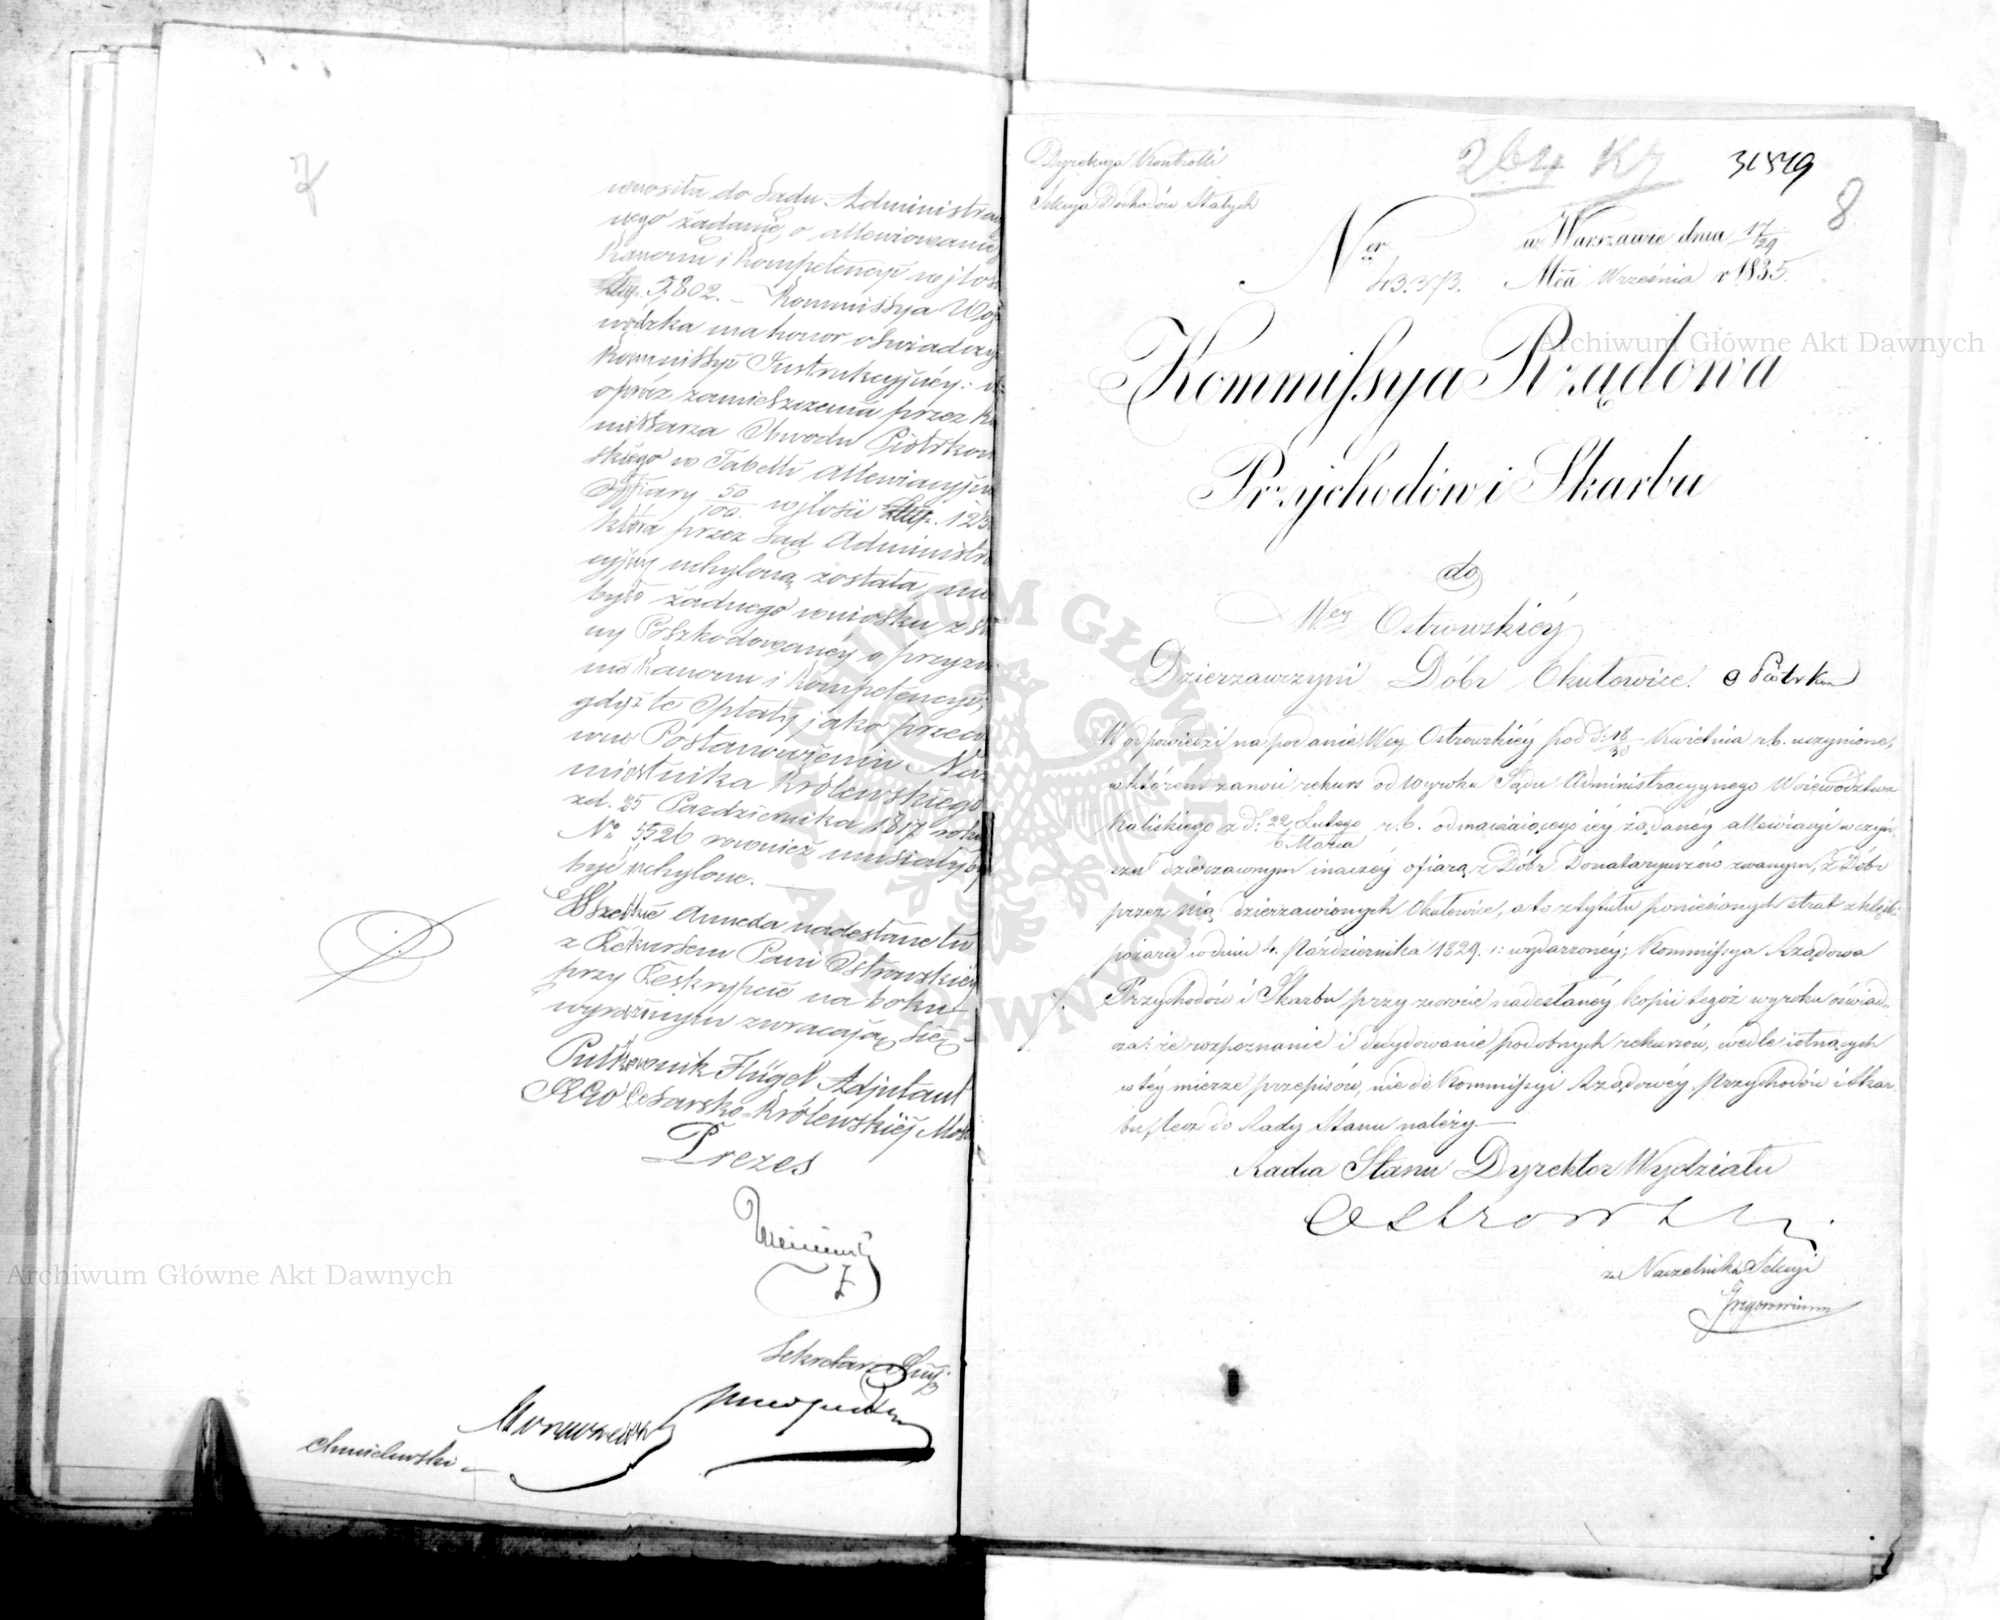 7
wnosiła do Sądu Administracy
nego żądanie, o allewiowanie
Kanonu i Kompetencyi w jlości
Złtp. 5,802. – Kommissya Woje
wódzka ma honor oświadczyć
Kommissyi Instrukcyjney: iż
oprócz zamieszczenia przez Ko
missarza Obwodu Piotrkow
skiego w Tabelli Allewiacyjney
Offiary 50/100 w jlości Złtp. 123
która przez Sąd Administra
cyjny uchyloną została, nie
było żadnego wniosku ze stro
ny Poszkodowaney o przyzna
nie Kanonu i Kompetencyi,
gdyż te Opłaty jako przeci
wne Postanowieniu Na
miestnika Królewskiego
z d. 25 Pazdziernika 1817 roku
No 5526 rownież musiałyby
być uchylone. –
Wszelkie Annexa nadesłane tu
z Rekursem Pani Ostrowskiey
przy Reskrypcie na boku
wyrażonym zwracają się –
Pułkownik Flügel Adjutant
JEGO Cesarsko-Królewskiéj Mości
Prezes
Sekretarz
Chmielewski
Dyrekcya Kontrolli
Sekcya Dochodów Stałych
264 Kr
31579
8
Ner 43.373.
w Warszawie dnia 17/29
Mca Września r 1835.
Kommissya Rządowa
Przychodów i Skarbu
do
Wey Ostrowskiéy
Dzierzawczyni Dóbr Okułowice. o Piotrków
W odpowiedzi na podanie Wey Ostrowskiéy pod d: 18/30 Kwietnia r.b. uczynione,
w którém zanosi rekurs od Wyroku Sądu Administracyynego Województwa
Kaliskiego z d: 22 Lutego/6 Marca r.b. odmawiaiącego iéy żądanéy allewiacyi w czyn
szu dzierzawnym inaczéy ofiarą z Dóbr Donataryuszów zwanym, z Dóbr
przez Nią dzierzawionych Okułowice, a to z tytułu poniesionych strat z klęski
pożaru w dniu 4. Października 1829. r: wydarzonéy; Kommissya Rządowa
Przychodów i Skarbu przy zwrocie nadesłanéy kopii tegoż wyroku oświad-
cza: że rozpoznanie i decydowanie podobnych rekursów, wedle istnących
w téy mierze przepisów, nie do Kommissyi Rządowéy Przychodów i Skar
bu, lecz do Rady Stanu należy –
Radca Stanu Dyrektor Wydziału
Ostrowski
za Naczelnika Sekcyi